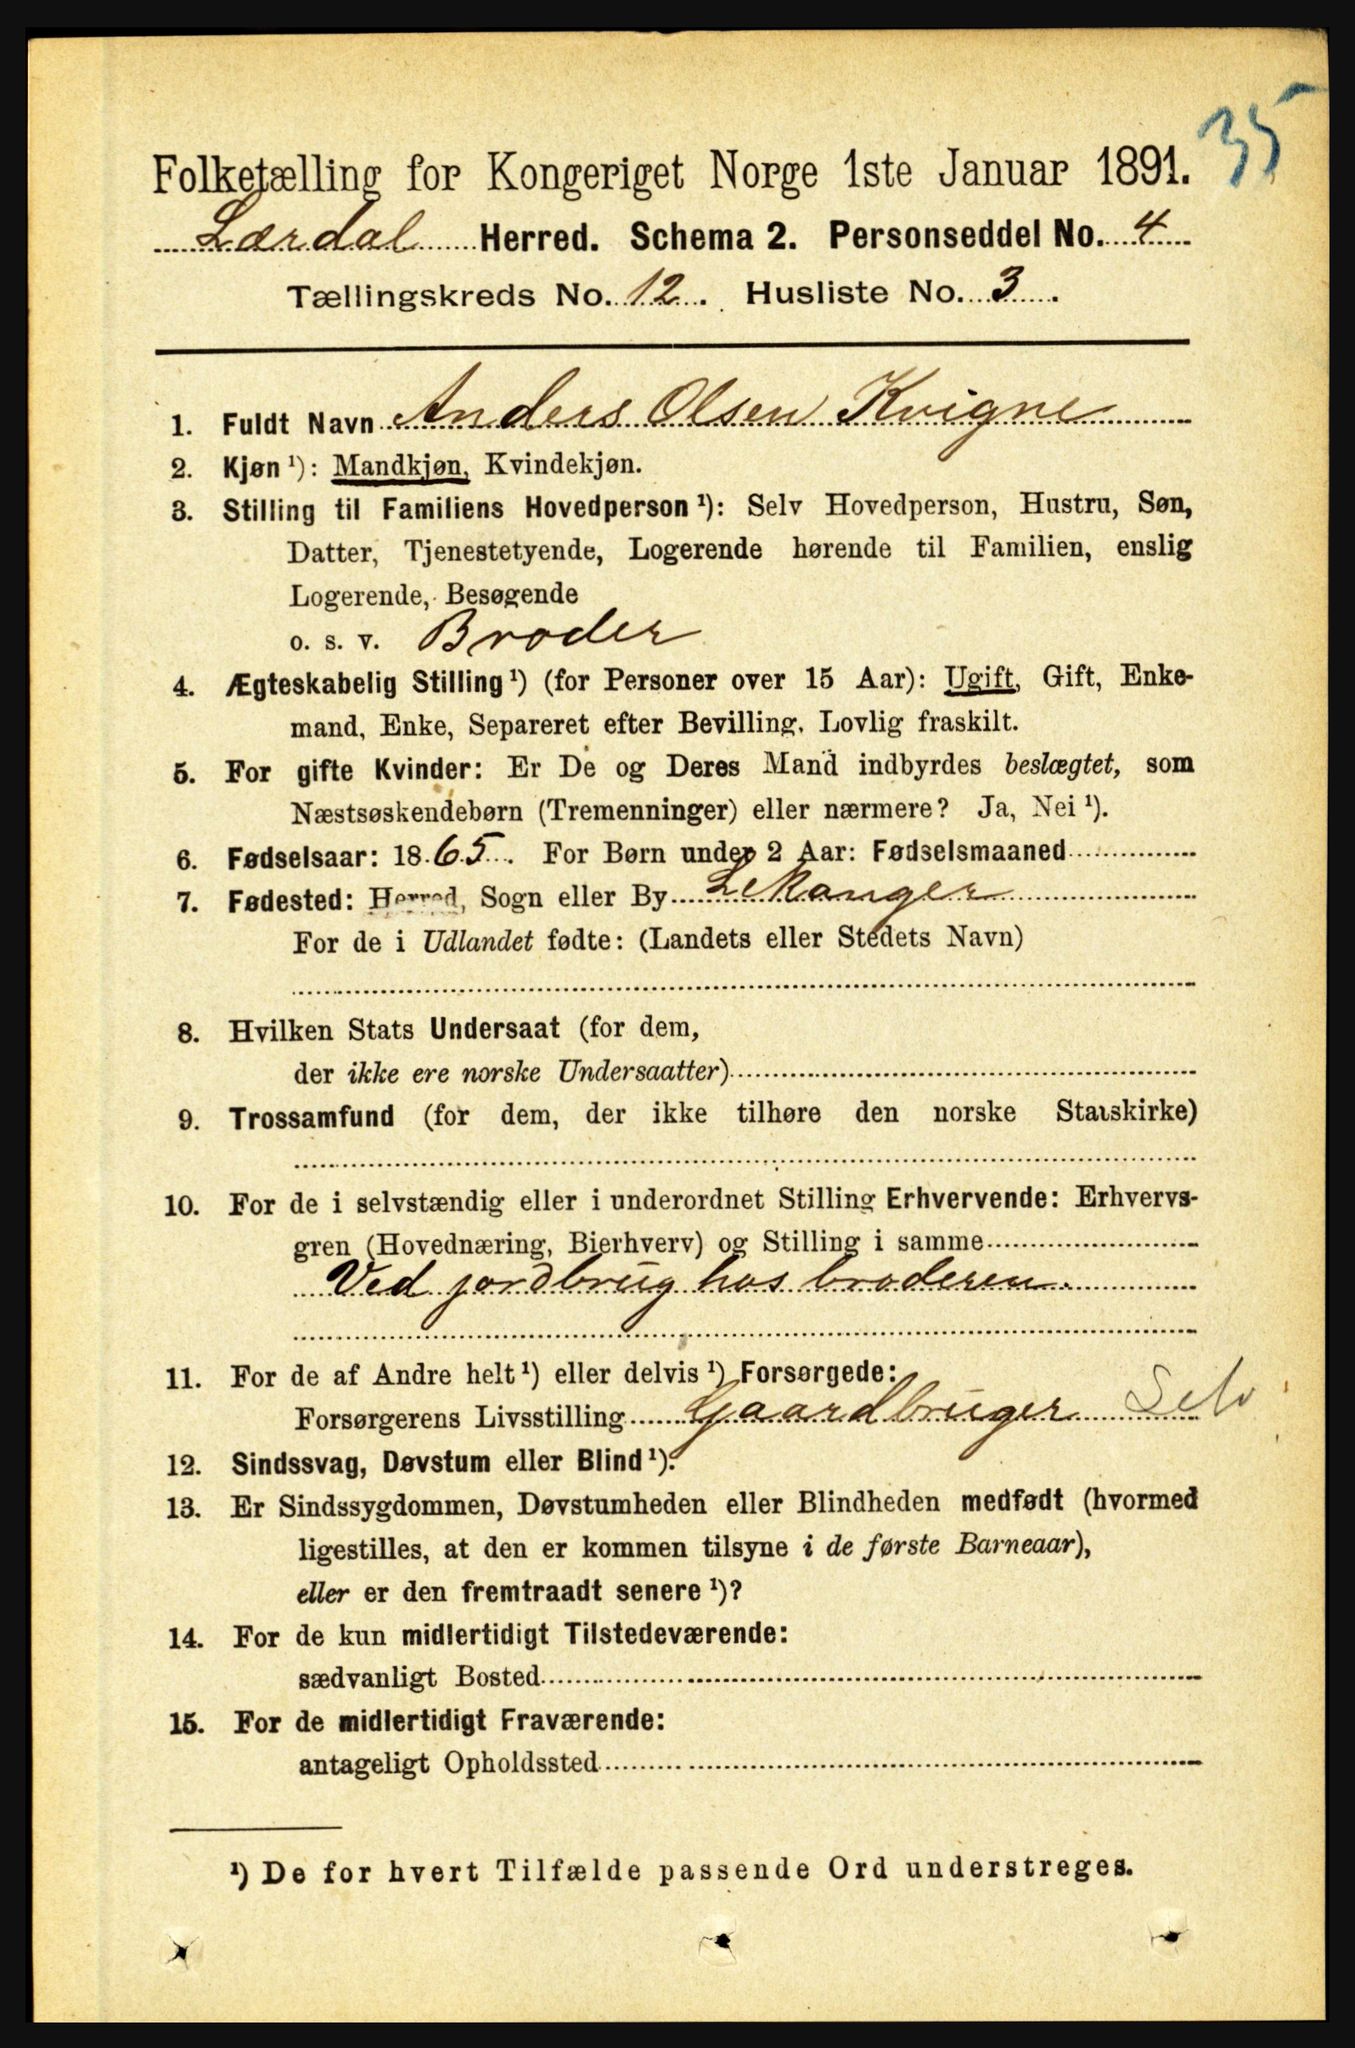 35
Folketælling for Kongeriget Norge 1ste Januar 1891.
Lærdal Herred. Schema 2. Personseddel No. 4
Tællingskreds No. 12. Husliste No. 3.
1. Fuldt Navn Anders Olsen Kvigne
2. Kjøn ¹): Mandkjøn, Kvindekjøn.
3. Stilling til Familiens Hovedperson ¹): Selv Hovedperson, Hustru, Søn,
Datter, Tjenestetyende, Logerende hørende til Familien, enslig
Logerende, Besøgende
o. s. v. Broder
4. Ægteskabelig Stilling ¹) (for Personer over 15 Aar): Ugift, Gift, Enke-
mand, Enke, Separeret efter Bevilling, Lovlig fraskilt.
5. For gifte Kvinder: Er De og Deres Mand indbyrdes beslægtet, som
Næstsøskendebørn (Tremenninger) eller nærmere? Ja, Nei ¹).
6. Fødselsaar: 1865. For Børn under 2 Aar: Fødselsmaaned
7. Fødested: Herred, Sogn eller By Lekanger
For de i Udlandet fødte: (Landets eller Stedets Navn)
8. Hvilken Stats Undersaat (for dem,
der ikke ere norske Undersaatter)
9. Trossamfund (for dem, der ikke tilhøre den norske Statskirke)
10. For de i selvstændig eller i underordnet Stilling Erhvervende: Erhvervs-
gren (Hovednæring, Bierhverv) og Stilling i samme
Ved jordbrug hos broderen.
11. For de af Andre helt ¹) eller delvis ¹) Forsørgede:
Forsørgerens Livsstilling Gaardbruger Selv
12. Sindssvag, Døvstum eller Blind ¹).
13. Er Sindssygdommen, Døvstumheden eller Blindheden medfødt (hvormed
ligestilles, at den er kommen tilsyne i de første Barneaar),
eller er den fremtraadt senere ¹)?
14. For de kun midlertidigt Tilstedeværende:
sædvanligt Bosted
15. For de midlertidigt Fraværende:
antageligt Opholdssted
¹) De for hvert Tilfælde passende Ord understreges.